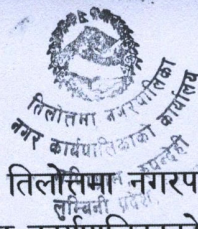 तिलोत्तमा नगरपालिका
नगर कार्यपालिकाको कार्यालय
रुपन्देही
लुम्बिनी प्रदेश
तिलोत्तमा नगरप